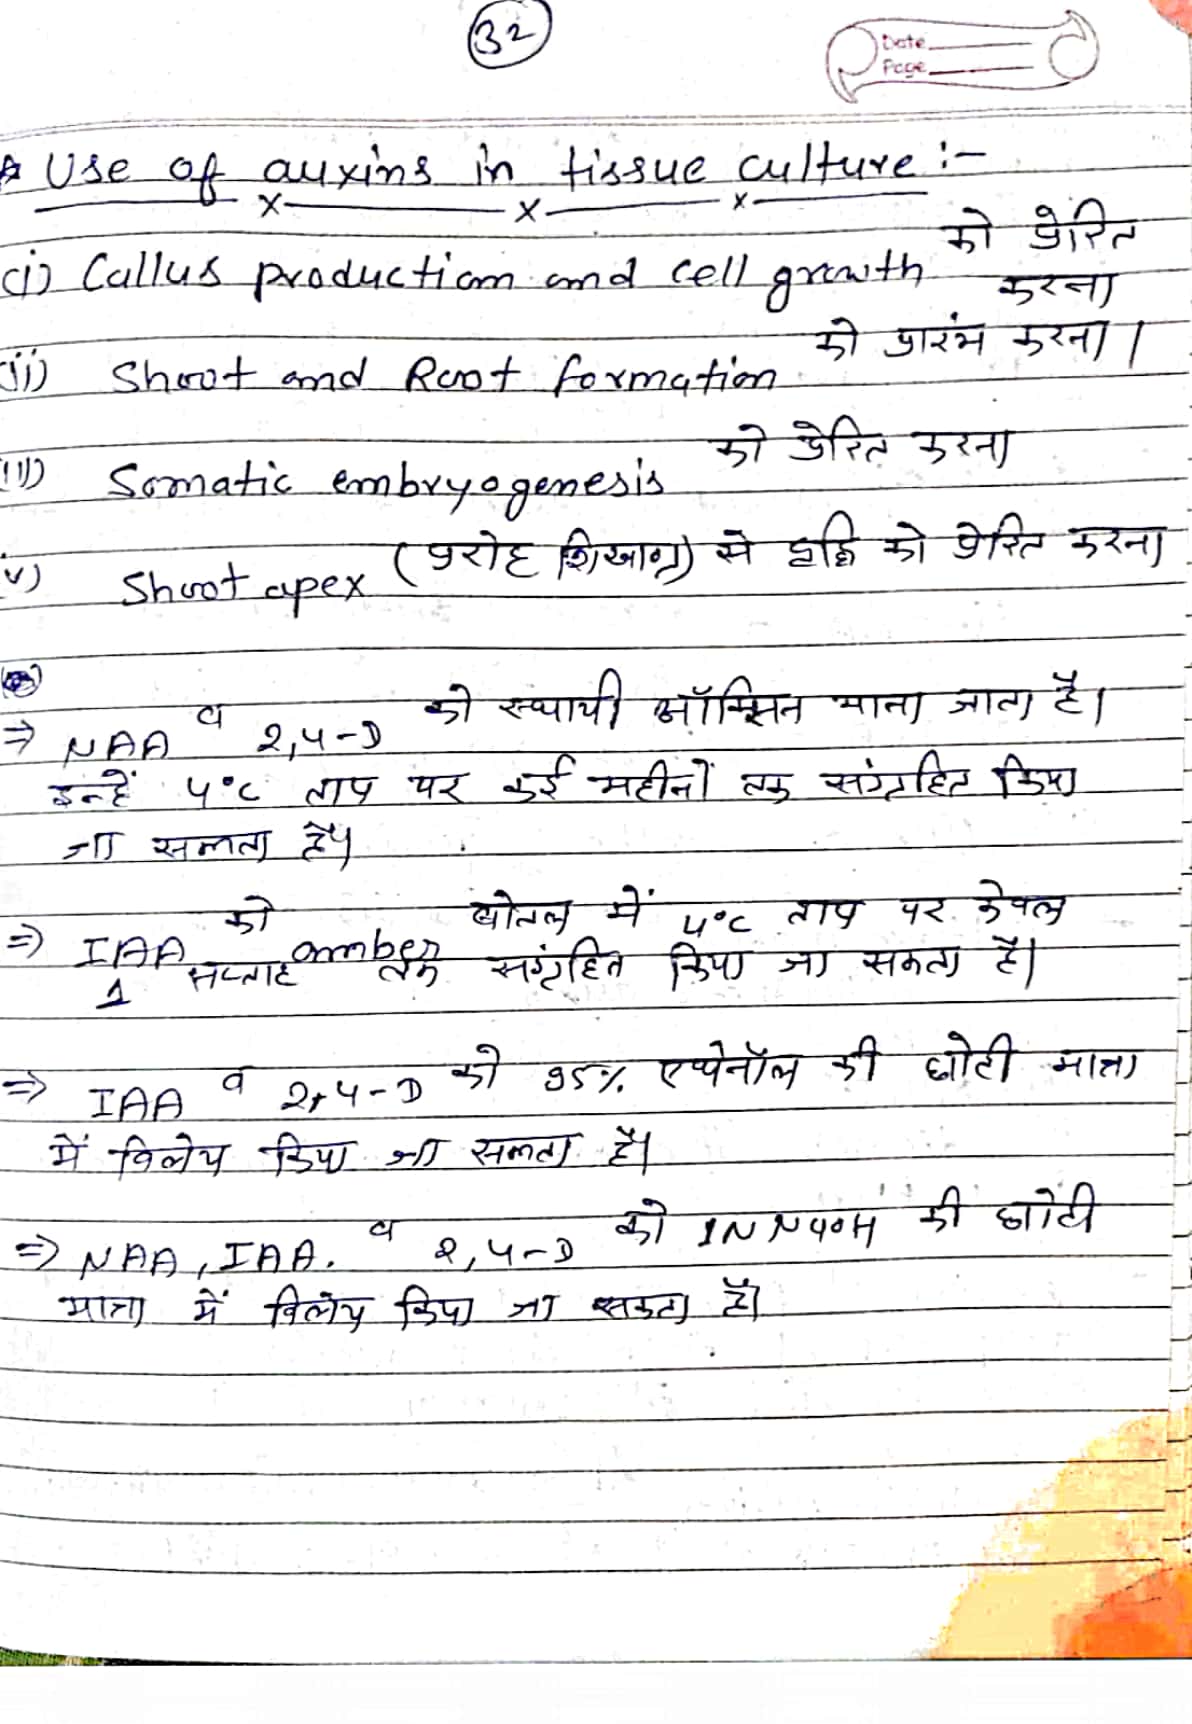 32
Date
Page
Use of auxins in tissue culture :-
(i) Callus production and cell growth को प्रेरित करना
(ii) Shoot and Root formation को प्रारंभ करना।
(iii) Somatic embryogenesis को प्रेरित करना
v) Shoot apex (प्ररोह शिखाग्र) से वृद्धि को प्रेरित करना
⇒ NAA व 2,4-D को स्थायी ऑक्सिन माना जाता है।
इन्हें 4°C ताप पर कई महीनों तक संग्रहित किया
जा सकता है।
⇒ IAA को amber बोतल में 4°C ताप पर केवल
1 सप्ताह तक संग्रहित किया जा सकता है।
⇒ IAA व 2,4-D को 95% एथेनॉल की छोटी मात्रा
में विलेय किया जा सकता है।
⇒ NAA, IAA. व 2,4-D को 1N N4OH की छोटी
मात्रा में विलेय किया जा सकता है।